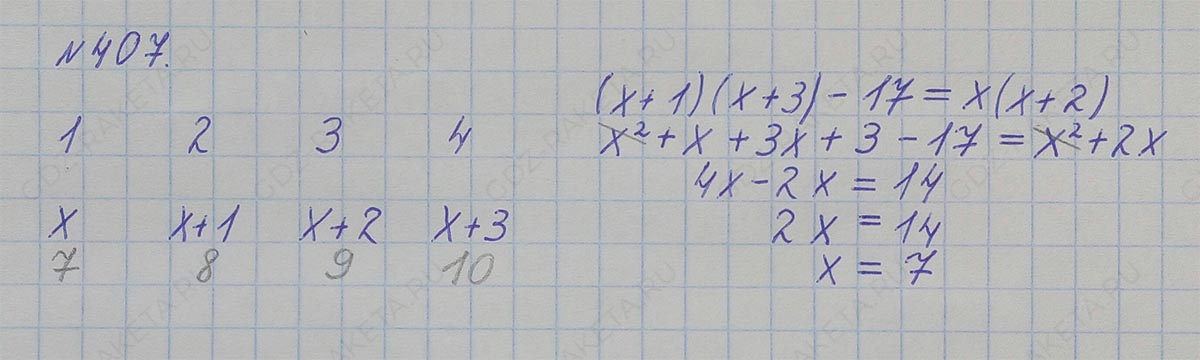 №407.
1 2 3 4
x x+1 x+2 x+3
7 8 9 10
(x+1)(x+3)-17=x(x+2)
x²+x+3x+3-17=x²+2x
4x-2x=14
2x=14
x=7
GDZ-RAKETA.RU